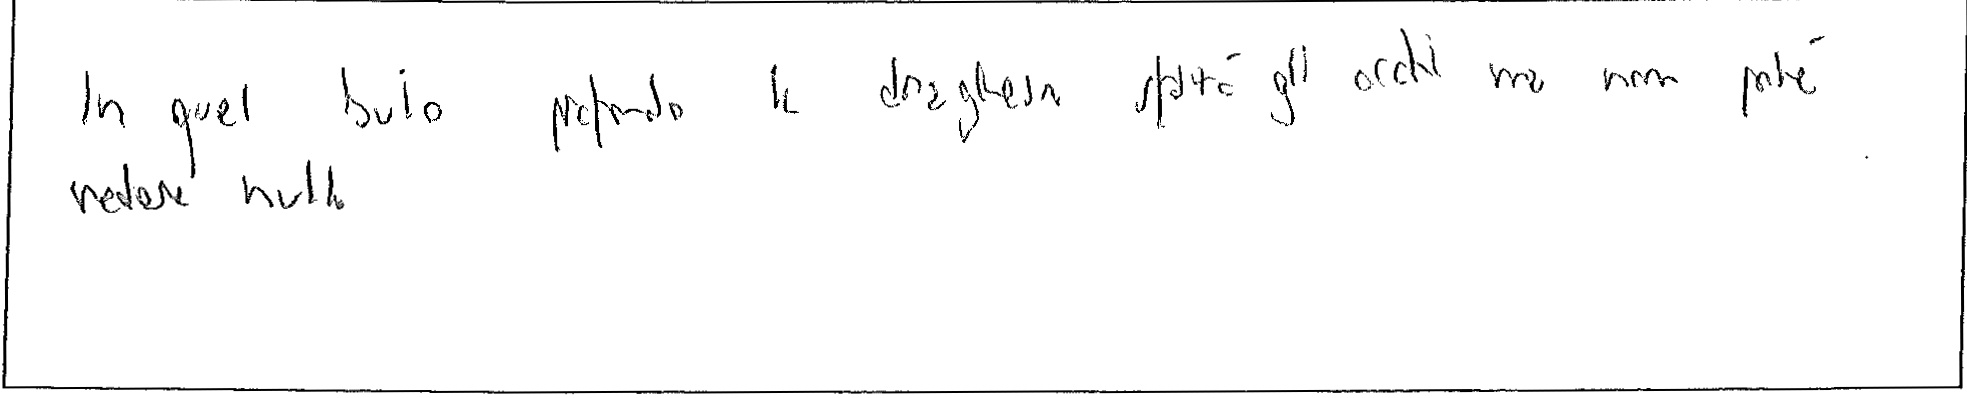 In quel buio profondo la draghessa spalancò gli occhi ma non poté
vedere nulla